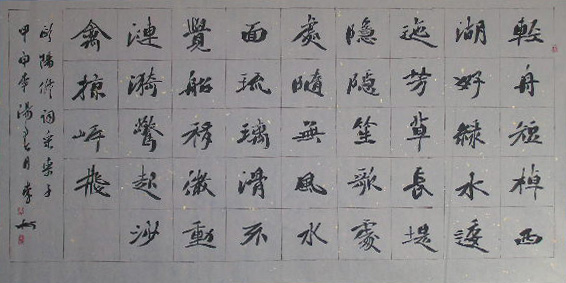 輕舟短棹西
湖好綠水逶
迤芳草長堤
隱隱笙歌處
處隨無風水
面琉璃滑不
覺船移微動
漣漪驚起沙
禽掠岸飛
歐陽修詞采桑子
甲申年 月李